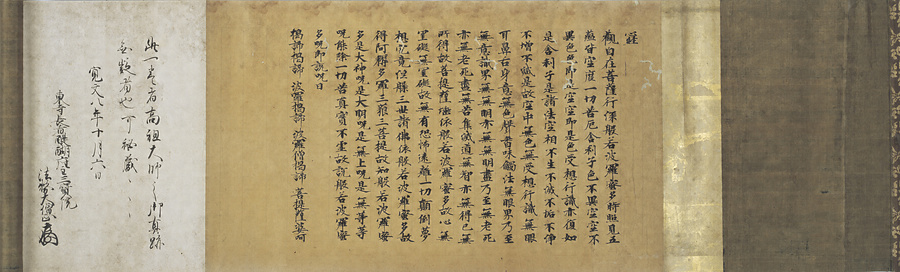 觀自在菩薩行深般若波羅蜜多時照見五
蘊皆空度一切苦厄舍利子色不異空空不
異色色即是空空即是色受想行識亦復如
是舍利子是諸法空相不生不滅不垢不淨
不增不減是故空中無色無受想行識無眼
耳鼻舌身意無色聲香味觸法無眼界乃至
無意識界無無明亦無無明盡乃至無老死
亦無老死盡無苦集滅道無智亦無得已無
所得故菩提薩埵依般若波羅蜜多故心無
罣礙無罣礙故無有恐怖遠離一切顛倒夢
想究竟涅槃三世諸佛依般若波羅蜜多故
得阿耨多羅三藐三菩提故知般若波羅蜜
多是大神呪是大明呪是無上呪是無等等
呪能除一切苦真實不虛故說般若波羅蜜
多呪即說呪曰
揭諦揭諦 波羅揭諦 波羅僧揭諦 菩提薩婆呵
此一卷者高祖大師之御真跡
無疑者也可秘藏〻〻
寛文八年十月六日
東寺長者醍醐三寶院
大僧正